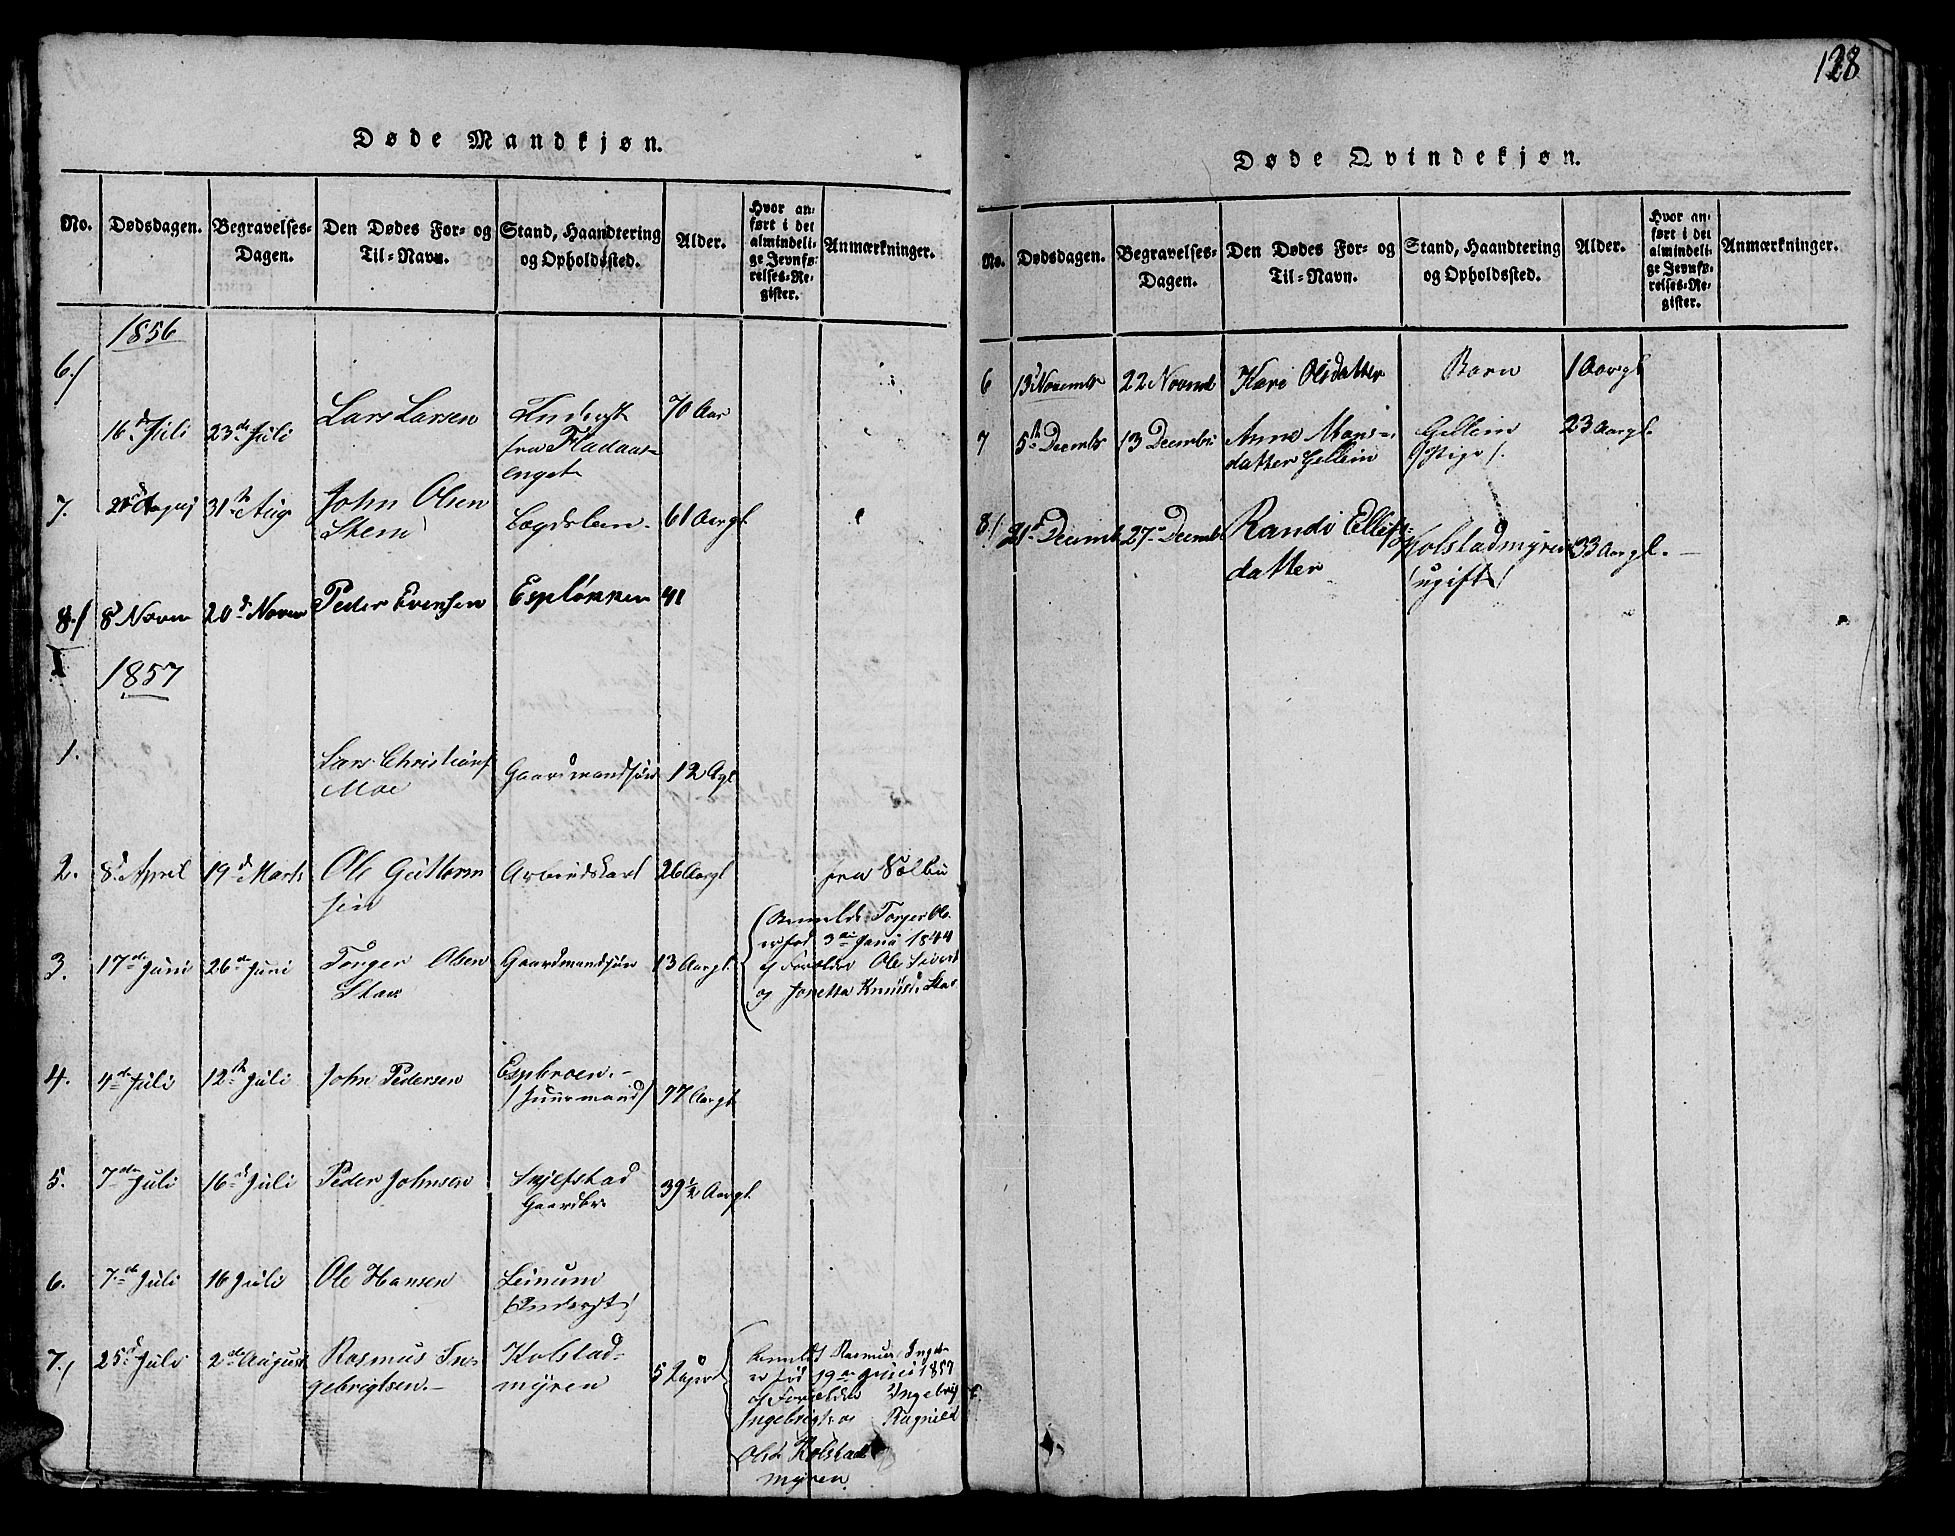 128
Døde Mandkjøn.
No. Dødsdagen. Begravelses-Dagen. Den Dødes For- og Til-Navn. Stand, Haandtering og Opholdssted. Alder. Hvor anført i det almindelige Jevnførelses-Register. Anmærkninger.
1856
6./ 16d Juli 23de Juli Lars Larsen
fra Fladaas-
enget 70 Aar
7. 31te Aug John Olsen
Stene Lægdslem 61 Aargl
8./ 8d Novem 20d Novem Peder Evensen Espløkken 41
1857
1. Lars Christians
Moe Gaardmandsøn 12 Agl
2. 8d April 19d Marts Ole Guttorm
sen Arbeidskarl 26 Aargl fra Volbu
3. 17de Juni 26de Juni Torger Olsen
Staa Gaardmandsøn 13 Aargl.
Anmeldt Torger Ol.
er fød 3die Juni 1844
af Forældre Ole Sivert
og Jonetta Knudsd. Staa
4. 4de Juli 12te Juli John Pedersen Espbroen.-
/Huusmand/ 77 Aargl
5. 7de Juli 16d Juli Peder Johnsen Skjefstad
Gaardbr. 39½ Aargl.
6. 7de Juli 16 Juli Ole Hansen Leinum
7./ 25d Juli 2de August Rasmus In-
gebrigtsen.- Kolstad-
myren 5
Anmeldt Rasmus Inge-
er fød 19de Juni 1857
af Forældre Ingebrigt
Ingebrigts. og Ragnild
Olsd Kolstad
myren.
Døde Qvindekjøn.
No. Dødsdagen. Begravelses-Dagen. Den Dødes For- og Til-Navn. Stand, Haandtering og Opholdssted. Alder. Hvor anført i det almindelige Jevnførelses-Register. Anmærkninger.
6 13 Novembr 22 Novemb Kari Olsdatter Barn 1 Aargl
7 5te Decembr 13 Decembr Anne Mons-
datter Gellein Gellein
/Pige/. 23 Aargl.
8./ 21d Decemb 27de Decemb Randi Ellefs-
datter Kolstadmyren
/ugift/ 33 Aargl.